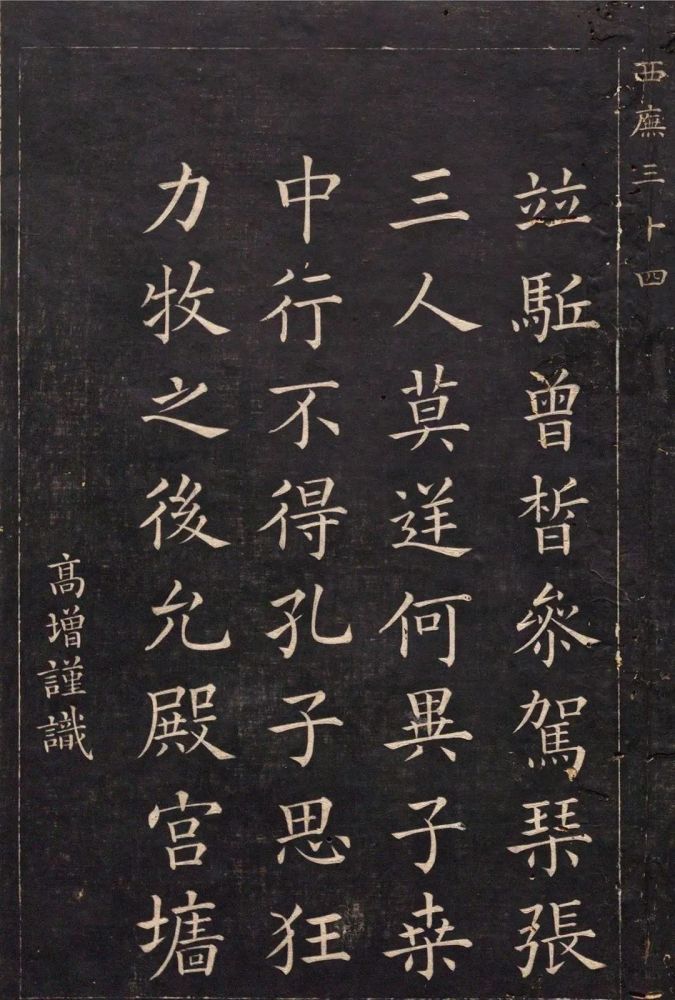 西廡三十四
竝駈曾晳叅駕琹張
三人莫逆何異子桒
中行不得孔子思狂
力牧之後允殿宮墻
高增謹識